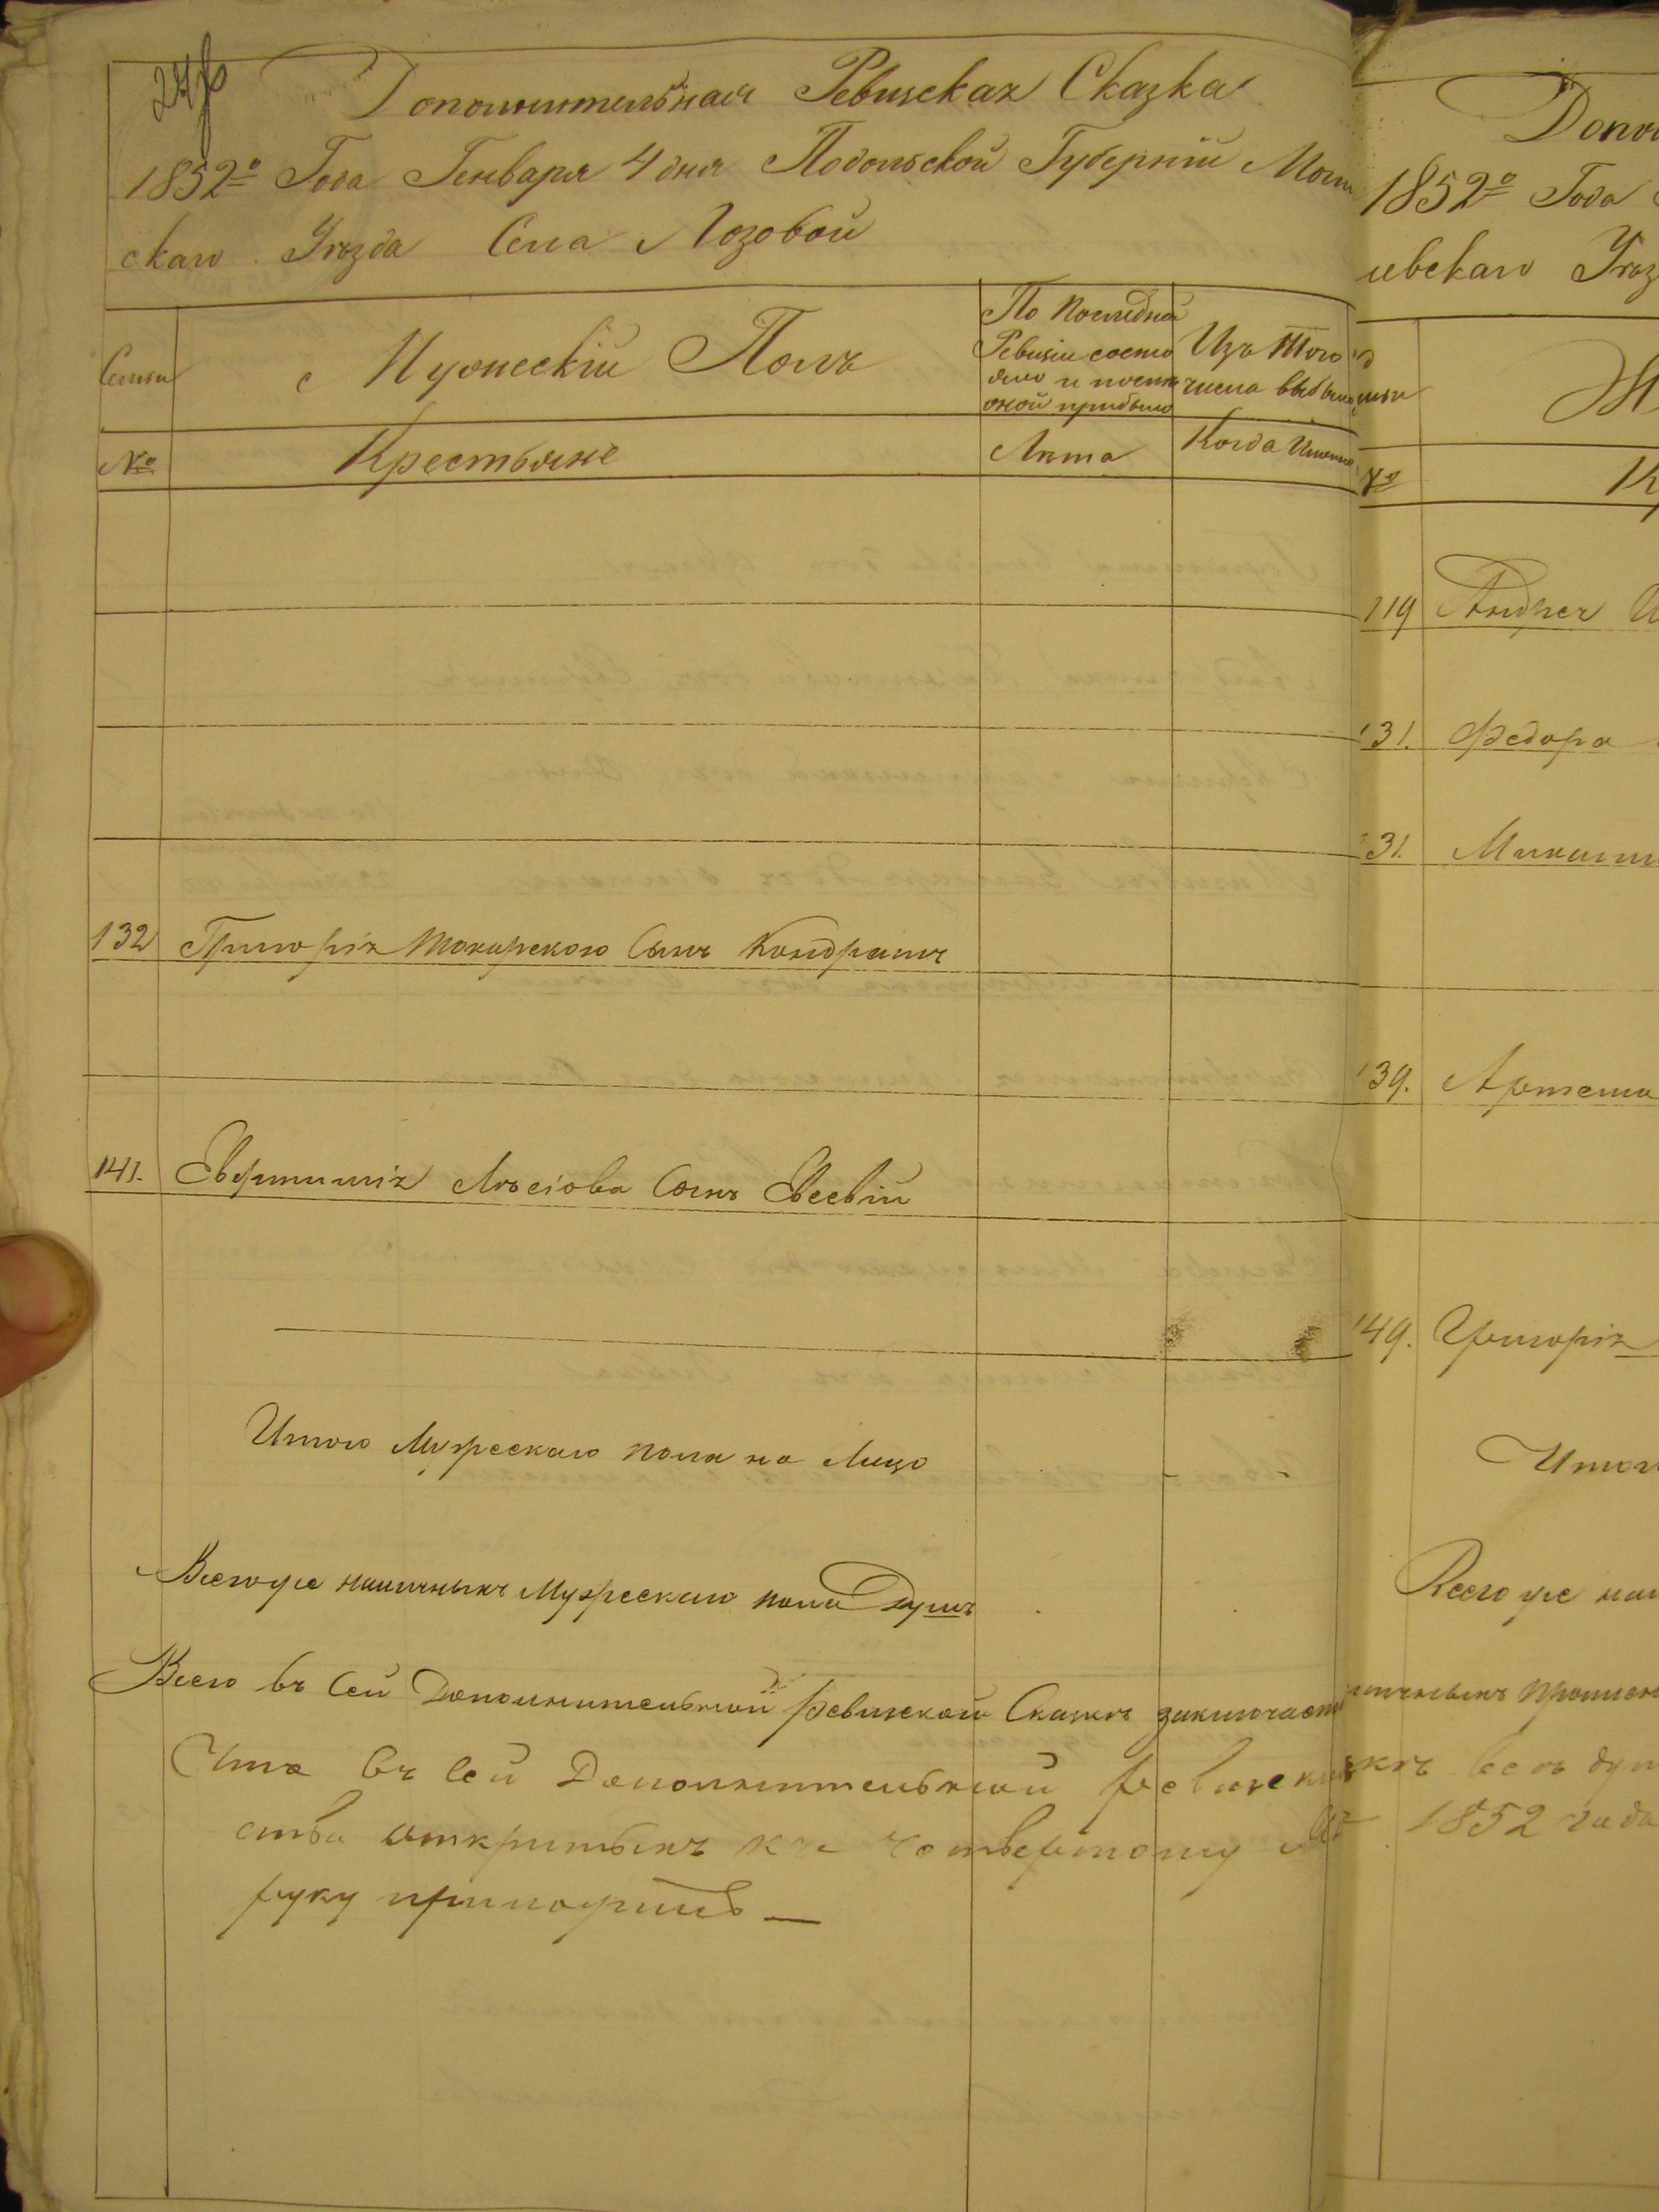 Дополнительная Ревизская Сказка
1852го Года Генваря 4 дня Подольской Губерніи Моги
скаго Уѣзда Села Лозовой
Семьи
Мужескій Полъ
По Последней
Ревизіи состо
яло и после
оной прибыло
Изъ того
числа выбыло
№
Крестьяне
Лѣта
Когда Именно
132 Григорія Токарского Сынъ Кондратъ
141. Евфтимія Алѣсіова Сынъ Евсевій
Итого Мужескаго пола на Лицо
Всего же наличныхъ Мужескаго пола Душъ
Всего въ сей Дополнительной ревизской Сказкѣ заключает
Что въ сей Дополнительной ревизской
ства открытыхъ къ четвертому
руку приложилъ
Допол
1852го Года
левскаго Уѣз
№
119 Андрея
131. Федора
131. Микит
139. Артема
149. Григорія
Итог
Всего же нал
всѣ душ
1852 года